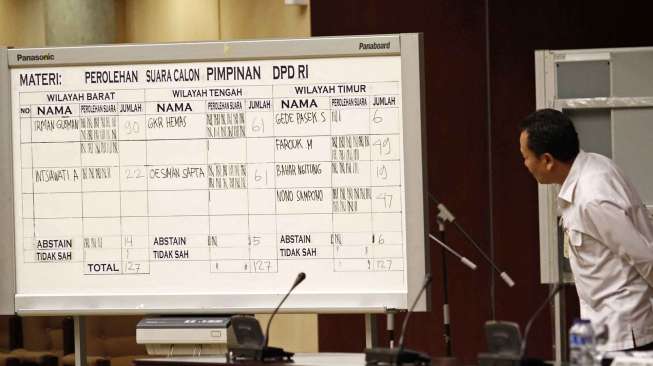 Panasonic
Panaboard
MATERI: PEROLEHAN SUARA CALON PIMPINAN DPD RI
WILAYAH BARAT WILAYAH TENGAH WILAYAH TIMUR
NO NAMA PEROLEHAN SUARA JUMLAH NAMA PEROLEHAN SUARA JUMLAH NAMA PEROLEHAN SUARA JUMLAH
IRMAN GUSMAN 90 GKR HEMAS 61 GEDE PASEK S 6
FAROUK M 49
INTSIAWATI A 22 OESMAN SAPTA 61 BAHAR NGITUNG 19
NONO SAMPONO 47
ABSTAIN 14 ABSTAIN 5 ABSTAIN 6
TIDAK SAH TIDAK SAH TIDAK SAH
TOTAL 127 127 127